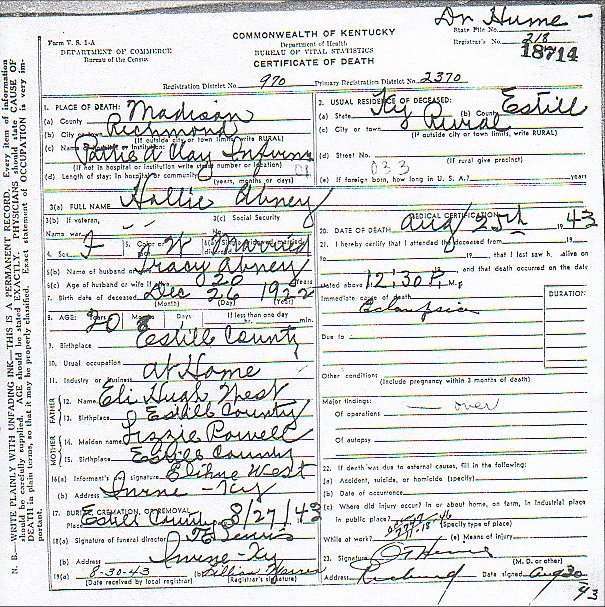 Dr Hume -
COMMONWEALTH OF KENTUCKY
Department of Health
BUREAU OF VITAL STATISTICS
CERTIFICATE OF DEATH
Form V. S. 1-A
DEPARTMENT OF COMMERCE
Bureau of the Census
State File No.
Registrar's No. 218
18714
Registration District No. 970 Primary Registration District No. 2370
N. B.—WRITE PLAINLY WITH UNFADING INK—THIS IS A PERMANENT RECORD. Every item of information
should be carefully supplied. AGE should be stated EXACTLY. PHYSICIANS should state CAUSE OF
DEATH in plain terms, so that it may be properly classified. Exact statement of OCCUPATION is very im-
portant.
1. PLACE OF DEATH:
(a) County Madison
(b) City or Richmond
(If outside city or town limits, write RURAL)
(c) Name of Hospital or Institution: Pattie A Clay Infirm
(If not in hospital or institution write street number or location)
(d) Length of stay: In hospital or community
(years, months or days)
2. USUAL RESIDENCE OF DECEASED:
(a) State Ky (b) County Estill
(c) City or town Rural
(If outside city or town limits, write RURAL)
(d) Street No. 033
(If rural give precinct)
(e) If foreign born, how long in U. S. A.? years
3(a) FULL NAME Hallie Abney
3(b) If veteran,
Name war
3(c) Social Security
No.
4. Sex F 5. Color or W Married
6(b) Name of husband or Tracy Abney
6(c) Age of husband or wife if alive 20 Years
7. Birth date of deceased Dec 26 1922
(Month) (Day) (Year)
8. AGE: Years 20 Months 8 Days If less than one day
hr. min.
9. Birthplace Estill County
10. Usual occupation at Home
11. Industry or business
FATHER
12. Name Eli Hugh West
13. Birthplace Estill County
MOTHER
14. Maiden name Lizzie Powell
15. Birthplace Estill County
16(a) Informant's signature Elihue West
(b) Address Irvine - Ky
17. BURIAL, CREMATION, OR REMOVAL
Place Estill County 8/27/43
18(a) Signature of funeral director
(b) Address Irvine - Ky
19(a) 8-30-43 (b) Lillian
(Date received by local registrar) (Registrar's signature)
MEDICAL CERTIFICATION
20. DATE OF DEATH Aug 25th 1943
21. I hereby certify that I attended the deceased from 19
to 19 that I last saw h alive on
19 and that death occurred on the date
stated above at 12:30 P. M.
DURATION:
Immediate cause of death Eclampsia
Due to
Other conditions
(Include pregnancy within 3 months of death)
Major findings: over
Of operations
Of autopsy
22. If death was due to external causes, fill in the following:
(a) Accident, suicide, or homicide (specify)
(b) Date of occurrence
(c) Where did injury occur? In or about home, on farm, in industrial place
in public place?
(Specify type of place)
While at work? (e) Means of injury
23. Signature O F Hume
(M. D. or other)
Address Richmond Date signed Aug 30
43